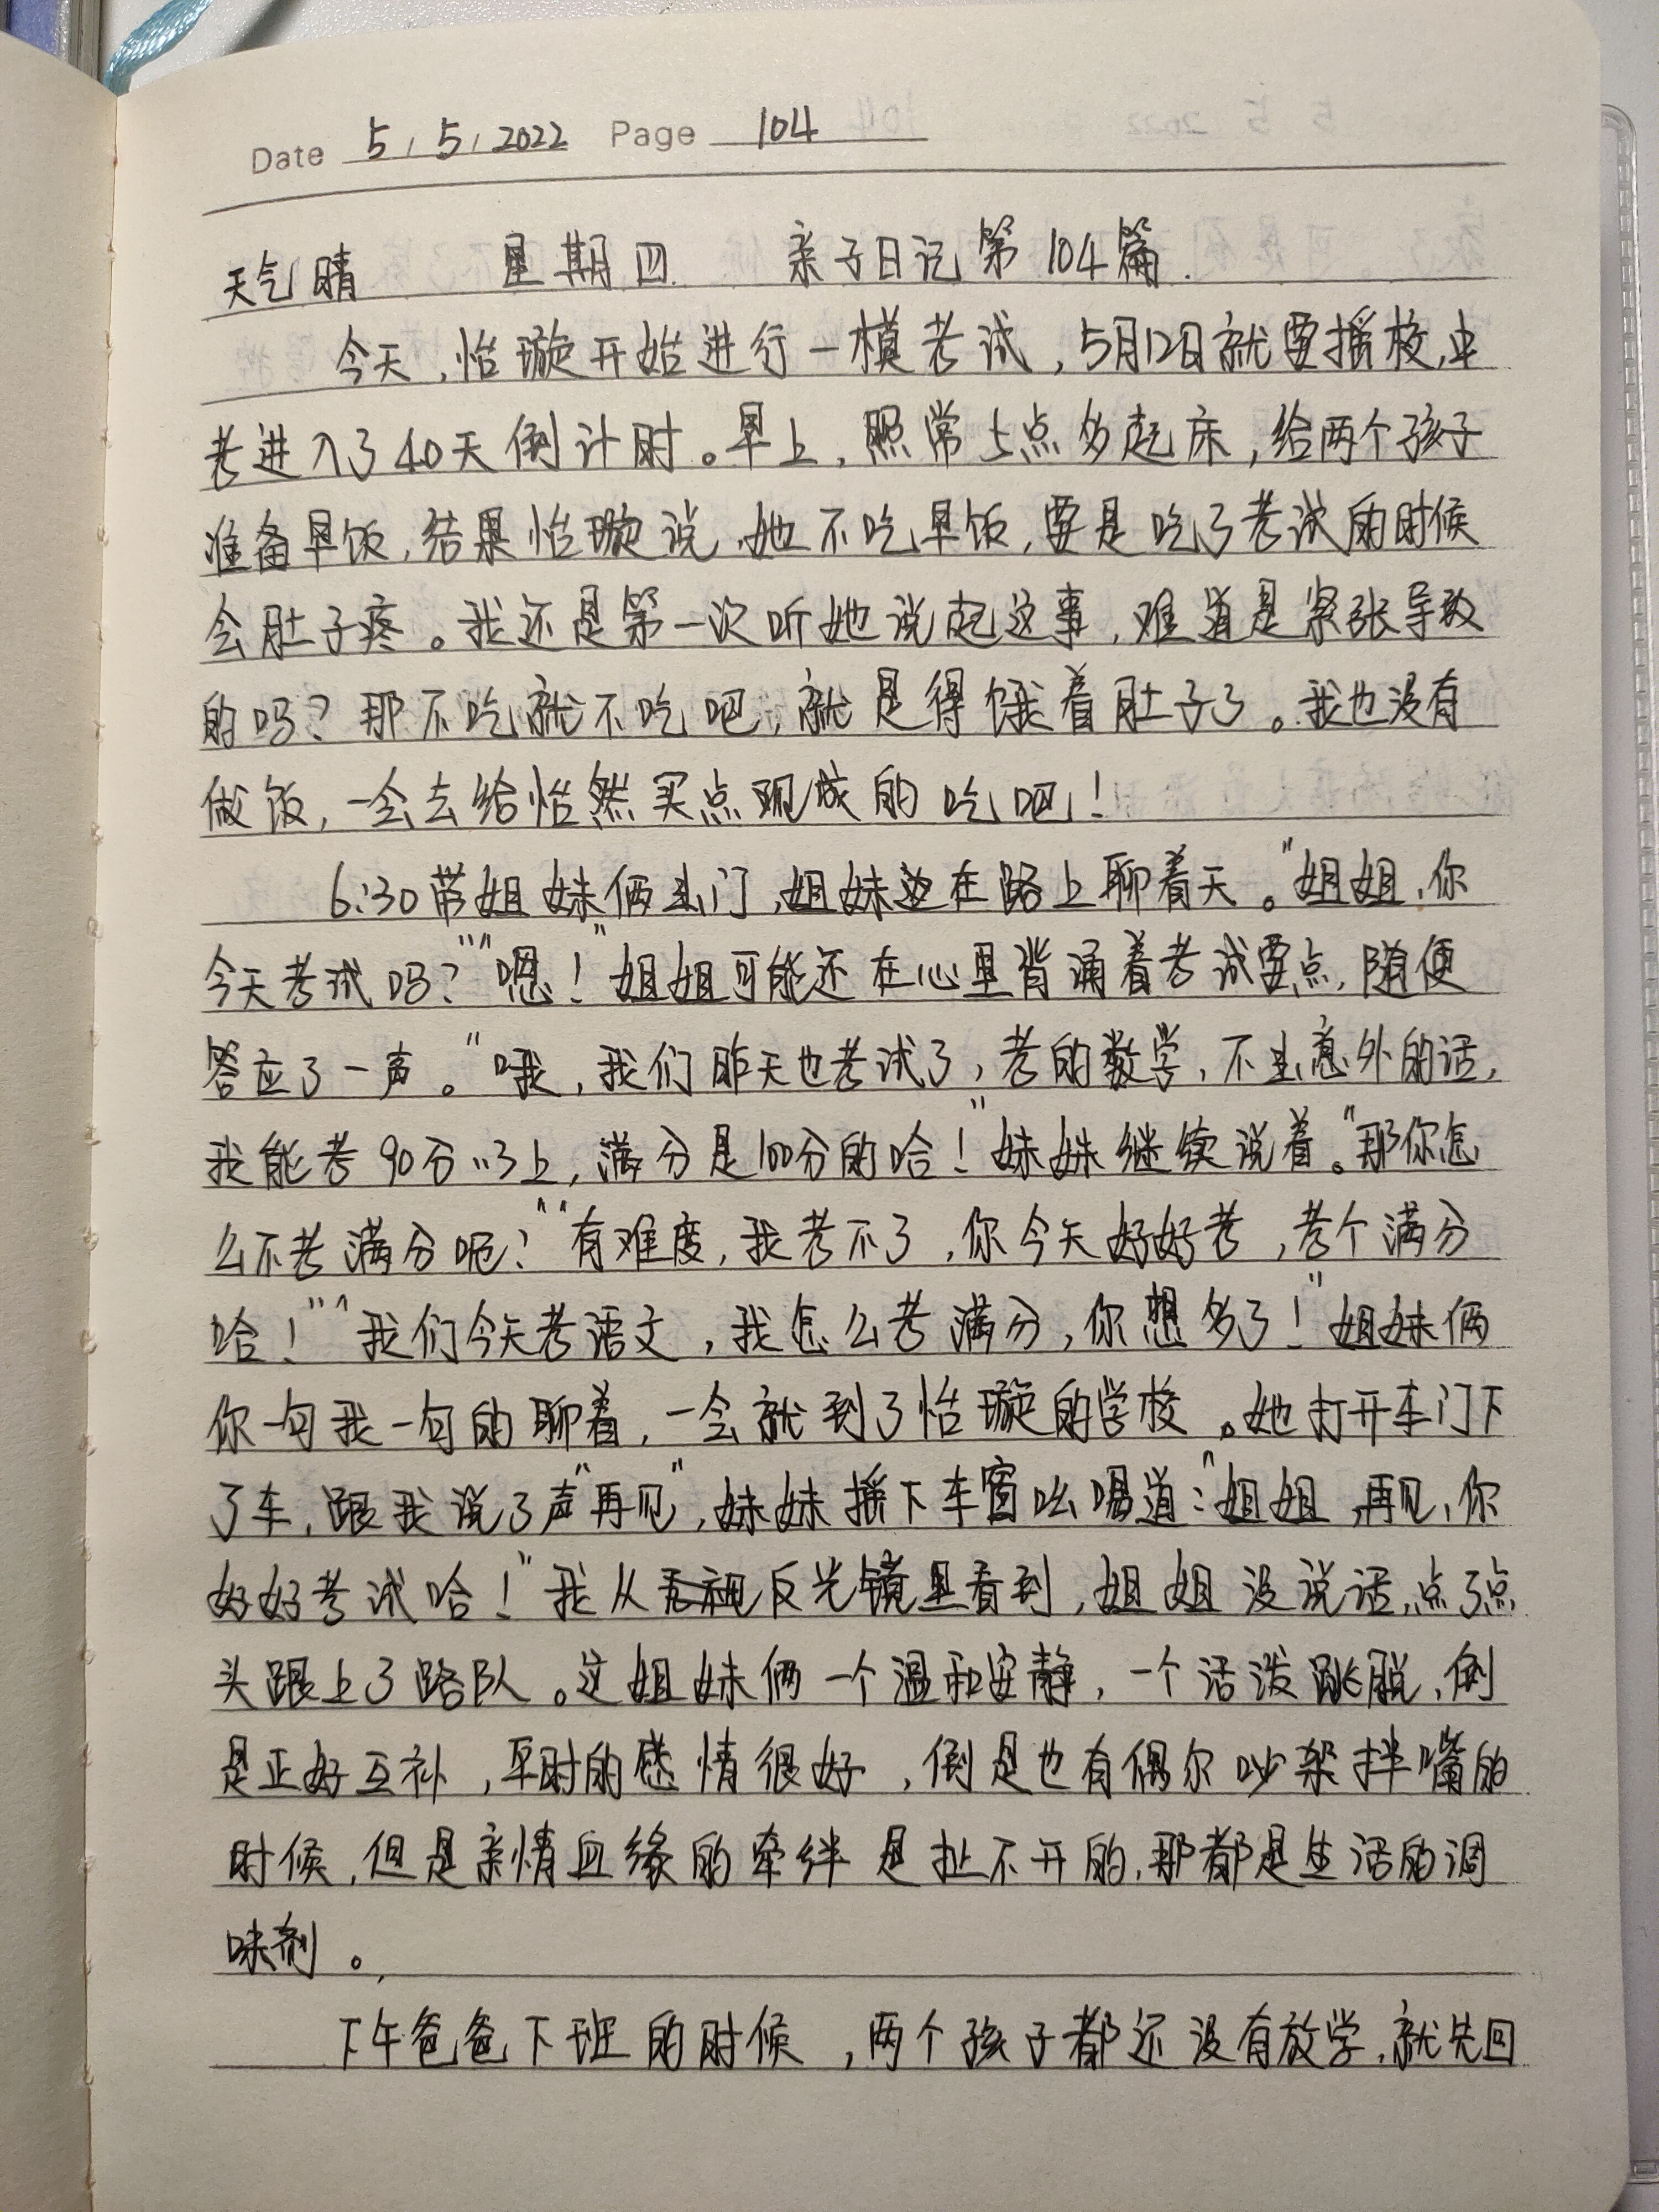 Date 5 / 5 / 2022 Page 104
天气晴 星期四 亲子日记第104篇.
今天,怡璇开始进行一模考试,5月12日就要摇校,中
考进入了40天倒计时。早上,照常5点多起床,给两个孩子
准备早饭,结果怡璇说,她不吃早饭,要是吃了考试的时候
会肚子疼。我还是第一次听她说起这事,难道是紧张导致
的吗?那不吃就不吃吧,就是得饿着肚子了。我也没有
做饭,一会去给怡然买点现成的吃吧!
6:30带姐妹俩出门,姐妹边在路上聊着天。"姐姐,你
今天考试吗?""嗯!"姐姐可能还在心里背诵着考试要点,随便
答应了一声。"哦,我们昨天也考试了,考的数学,不出意外的话,
我能考90分以上,满分是100分的哈!"妹妹继续说着。"那你怎
么不考满分呢?""有难度,我考不了,你今天好好考,考个满分
哈!""我们今天考语文,我怎么考满分,你想多了!"姐妹俩
你一句我一句的聊着,一会就到了怡璇的学校。她打开车门下
了车,跟我说了声"再见",妹妹摇下车窗吆喝道:"姐姐,再见,你
好好考试哈!"我从反光镜里看到,姐姐没说话,点了点
头跟上了路队。这姐妹俩一个温和安静,一个活泼跳脱,倒
是正好互补,平时的感情很好,倒是也有偶尔吵架拌嘴的
时候,但是亲情血缘的牵绊是扯不开的,那都是生活的调
味剂。
下午爸爸下班的时候,两个孩子都还没有放学,就先回